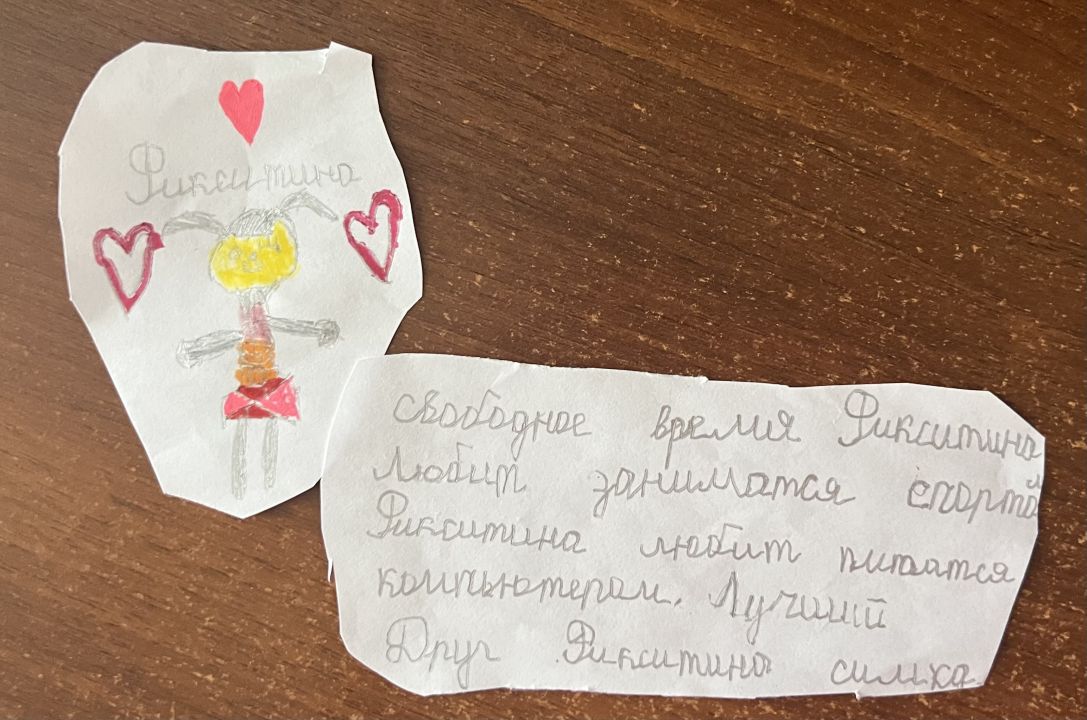 Фикситина
свободное время Фикситина
любит заниматся спорто
Фикситина любит питатся
компьютером. Лучший
Друг Фикситина симка